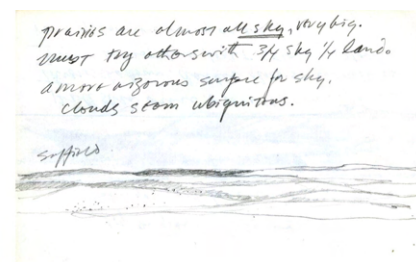 prairies are almost all sky, very big.
must try others with 3/4 sky 1/4 land.
a more vigorous surface for sky.
clouds seem ubiquitous.
Suffield.